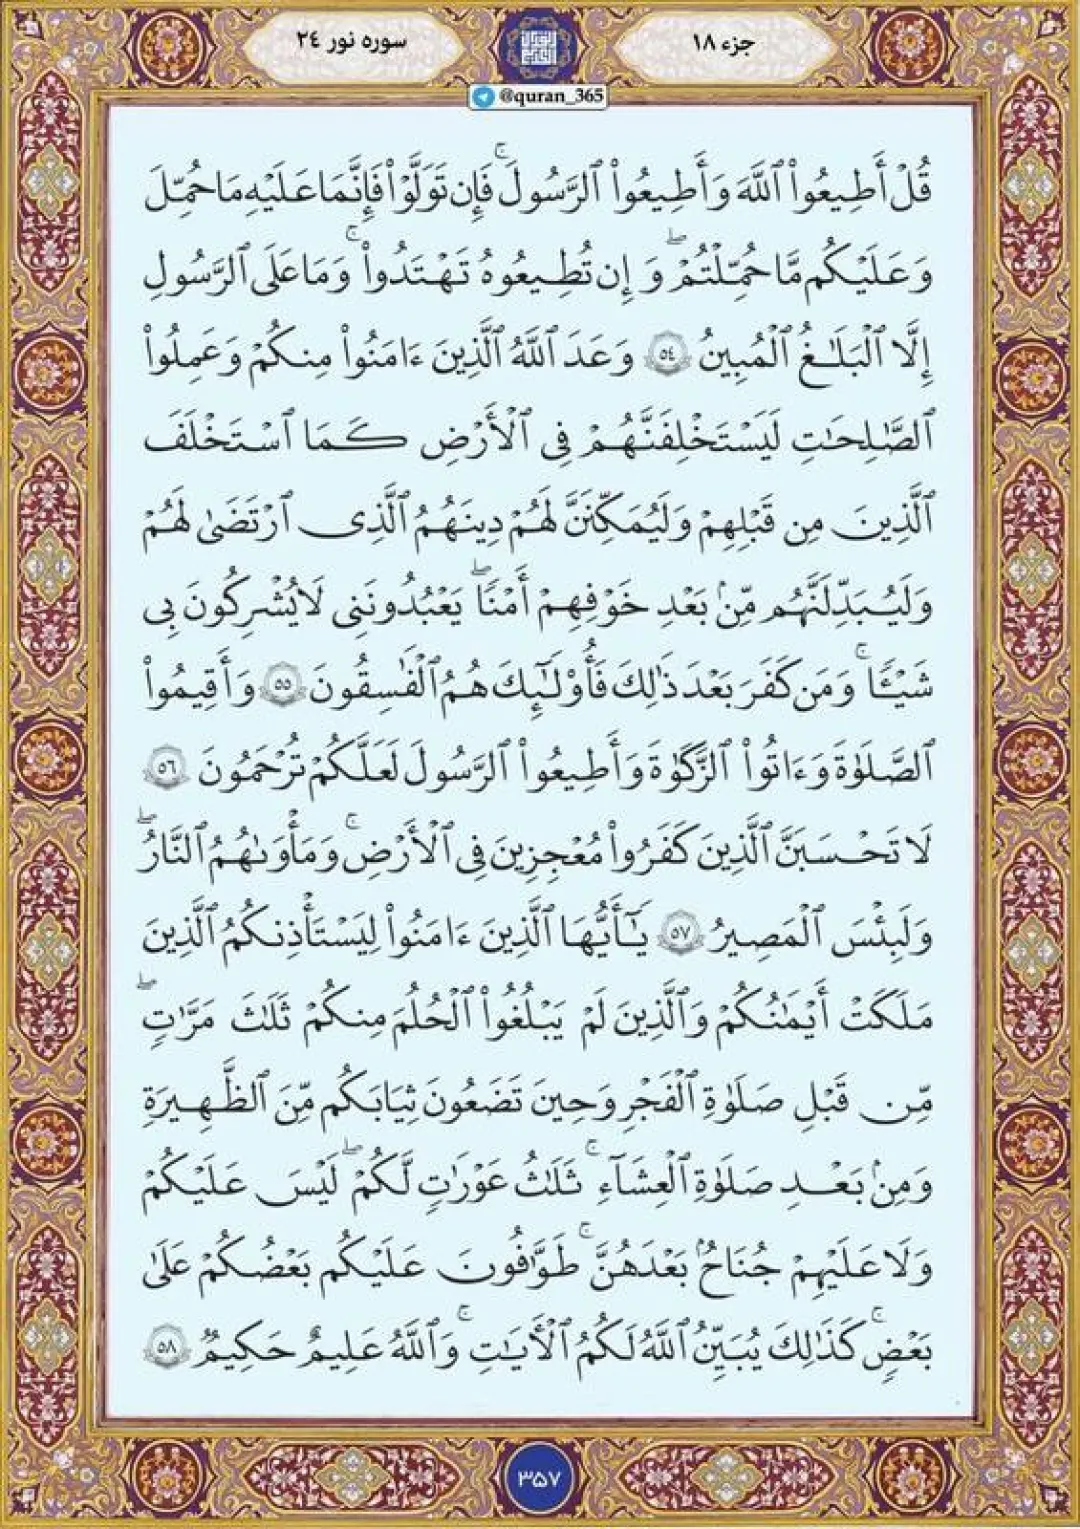 جزء ۱۸
سوره نور ۲٤
@quran_365
قُلۡ أَطِيعُواْ ٱللَّهَ وَأَطِيعُواْ ٱلرَّسُولَۖ فَإِن تَوَلَّوۡاْ فَإِنَّمَا عَلَيۡهِ مَا حُمِّلَ
وَعَلَيۡكُم مَّا حُمِّلۡتُمۡۖ وَإِن تُطِيعُوهُ تَهۡتَدُواْۚ وَمَا عَلَى ٱلرَّسُولِ
إِلَّا ٱلۡبَلَٰغُ ٱلۡمُبِينُ ٥٤ وَعَدَ ٱللَّهُ ٱلَّذِينَ ءَامَنُواْ مِنكُمۡ وَعَمِلُواْ
ٱلصَّٰلِحَٰتِ لَيَسۡتَخۡلِفَنَّهُمۡ فِي ٱلۡأَرۡضِ كَمَا ٱسۡتَخۡلَفَ
ٱلَّذِينَ مِن قَبۡلِهِمۡ وَلَيُمَكِّنَنَّ لَهُمۡ دِينَهُمُ ٱلَّذِي ٱرۡتَضَىٰ لَهُمۡ
وَلَيُبَدِّلَنَّهُم مِّنۢ بَعۡدِ خَوۡفِهِمۡ أَمۡنٗاۖ يَعۡبُدُونَنِي لَا يُشۡرِكُونَ بِي
شَيۡـٔٗاۚ وَمَن كَفَرَ بَعۡدَ ذَٰلِكَ فَأُوْلَٰٓئِكَ هُمُ ٱلۡفَٰسِقُونَ ٥٥ وَأَقِيمُواْ
ٱلصَّلَوٰةَ وَءَاتُواْ ٱلزَّكَوٰةَ وَأَطِيعُواْ ٱلرَّسُولَ لَعَلَّكُمۡ تُرۡحَمُونَ ٥٦
لَا تَحۡسَبَنَّ ٱلَّذِينَ كَفَرُواْ مُعۡجِزِينَ فِي ٱلۡأَرۡضِۚ وَمَأۡوَىٰهُمُ ٱلنَّارُۖ
وَلَبِئۡسَ ٱلۡمَصِيرُ ٥٧ يَٰٓأَيُّهَا ٱلَّذِينَ ءَامَنُواْ لِيَسۡتَـٔۡذِنكُمُ ٱلَّذِينَ
مَلَكَتۡ أَيۡمَٰنُكُمۡ وَٱلَّذِينَ لَمۡ يَبۡلُغُواْ ٱلۡحُلُمَ مِنكُمۡ ثَلَٰثَ مَرَّٰتٖۖ
مِّن قَبۡلِ صَلَوٰةِ ٱلۡفَجۡرِ وَحِينَ تَضَعُونَ ثِيَابَكُم مِّنَ ٱلظَّهِيرَةِ
وَمِنۢ بَعۡدِ صَلَوٰةِ ٱلۡعِشَآءِۚ ثَلَٰثُ عَوۡرَٰتٖ لَّكُمۡۖ لَيۡسَ عَلَيۡكُمۡ
وَلَا عَلَيۡهِمۡ جُنَاحُۢ بَعۡدَهُنَّۚ طَوَّٰفُونَ عَلَيۡكُم بَعۡضُكُمۡ عَلَىٰ
بَعۡضٖۚ كَذَٰلِكَ يُبَيِّنُ ٱللَّهُ لَكُمُ ٱلۡأٓيَٰتِۚ وَٱللَّهُ عَلِيمٌ حَكِيمٞ ٥٨
۳۵۷